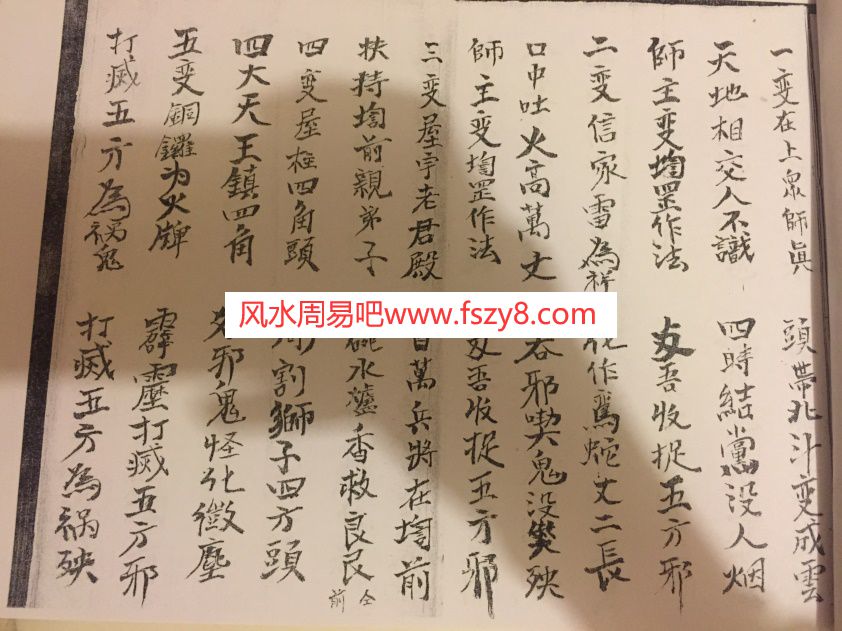 一变在上衆師眞 頭帶北斗变成雲
天地相交人不識 四時結黨没人烟
師主变壇罡作法 吾收捉五方邪
二变信家雪為 作蛇丈二長
口中吐火高萬丈 吞邪喫鬼没殃
師主变壇罡作法 吾收捉五方邪
三变屋宇老君殿 百萬兵將在壇前
扶持壇前親弟子 碗水爐香救良民
仝前
四变屋柱四角頭 割獅子四方頭
四大天王鎮四角 邪鬼怪化微塵
五变銅鑼为火牌 霹靂打滅五方邪
打滅五方為禍鬼 打滅五方為禍殃
风水周易吧www.fszy8.com